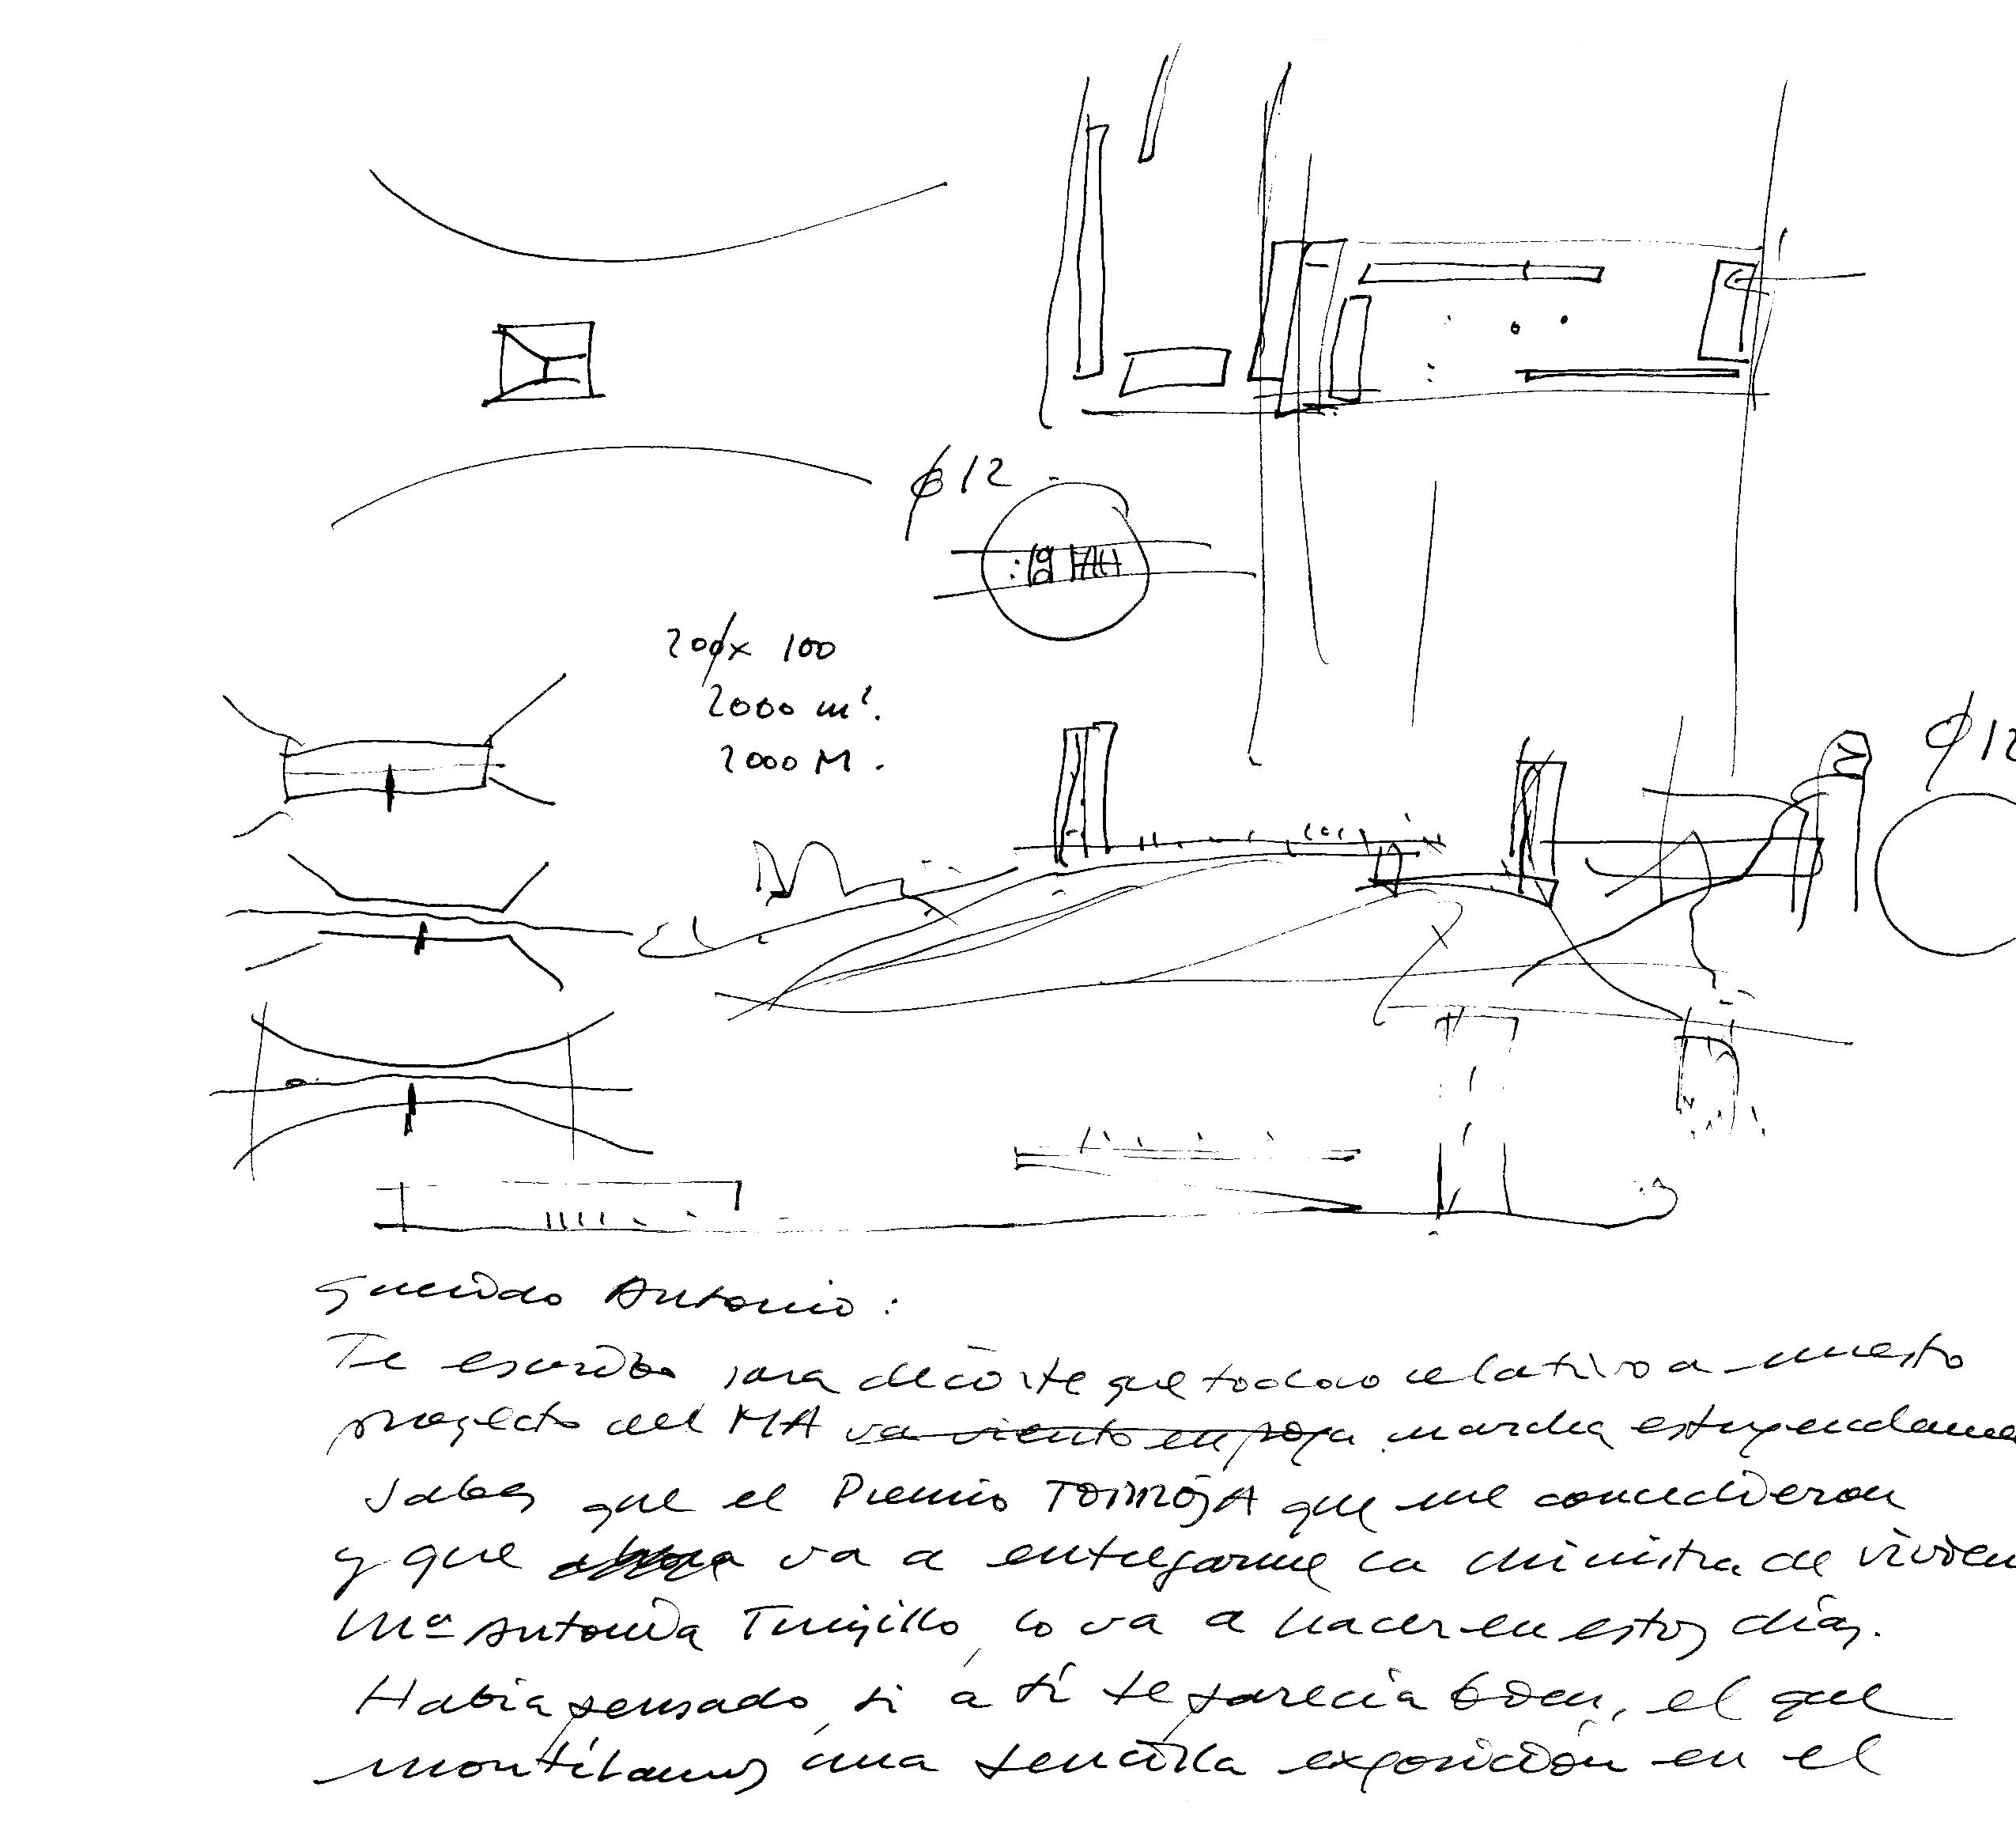 ϕ 12
200 x 100
2000 m².
2000 M.
ϕ 12
Querido Antonio:
Te escribo para decirte que todo lo relativo a nuestro
proyecto del MA va viento en popa marcha estupendame
Sabes que el Premio TORROJA que me concedieron
y que ahora va a entregarme la ministra de vivien
Mª Antonia Trujillo, lo va a hacer en estos días.
Había pensado, si a ti te parecía bien, el que
una sencilla exposición en el